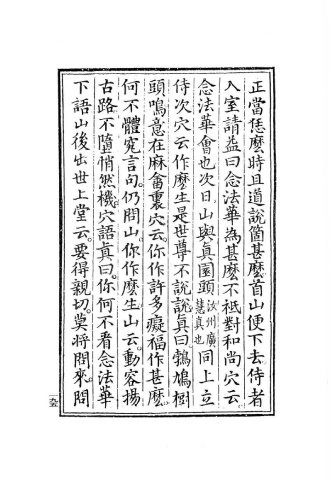 正當恁麼時且道說箇甚麼首山便下去侍者
入室請益曰念法華為甚麼不祗對和尚穴云
念法華會也次日山與真園頭汝州廣慧真也同上立
侍次穴云作麼生是世尊不說說真曰鵓鳩樹
頭鳴意在麻畬裏穴云你作許多癡福作甚麼
何不體究言句仍問山你作麼生山云動容揚
古路不墮悄然機穴語真曰你何不看念法華
下語山後出世上堂云要得親切莫將問來問